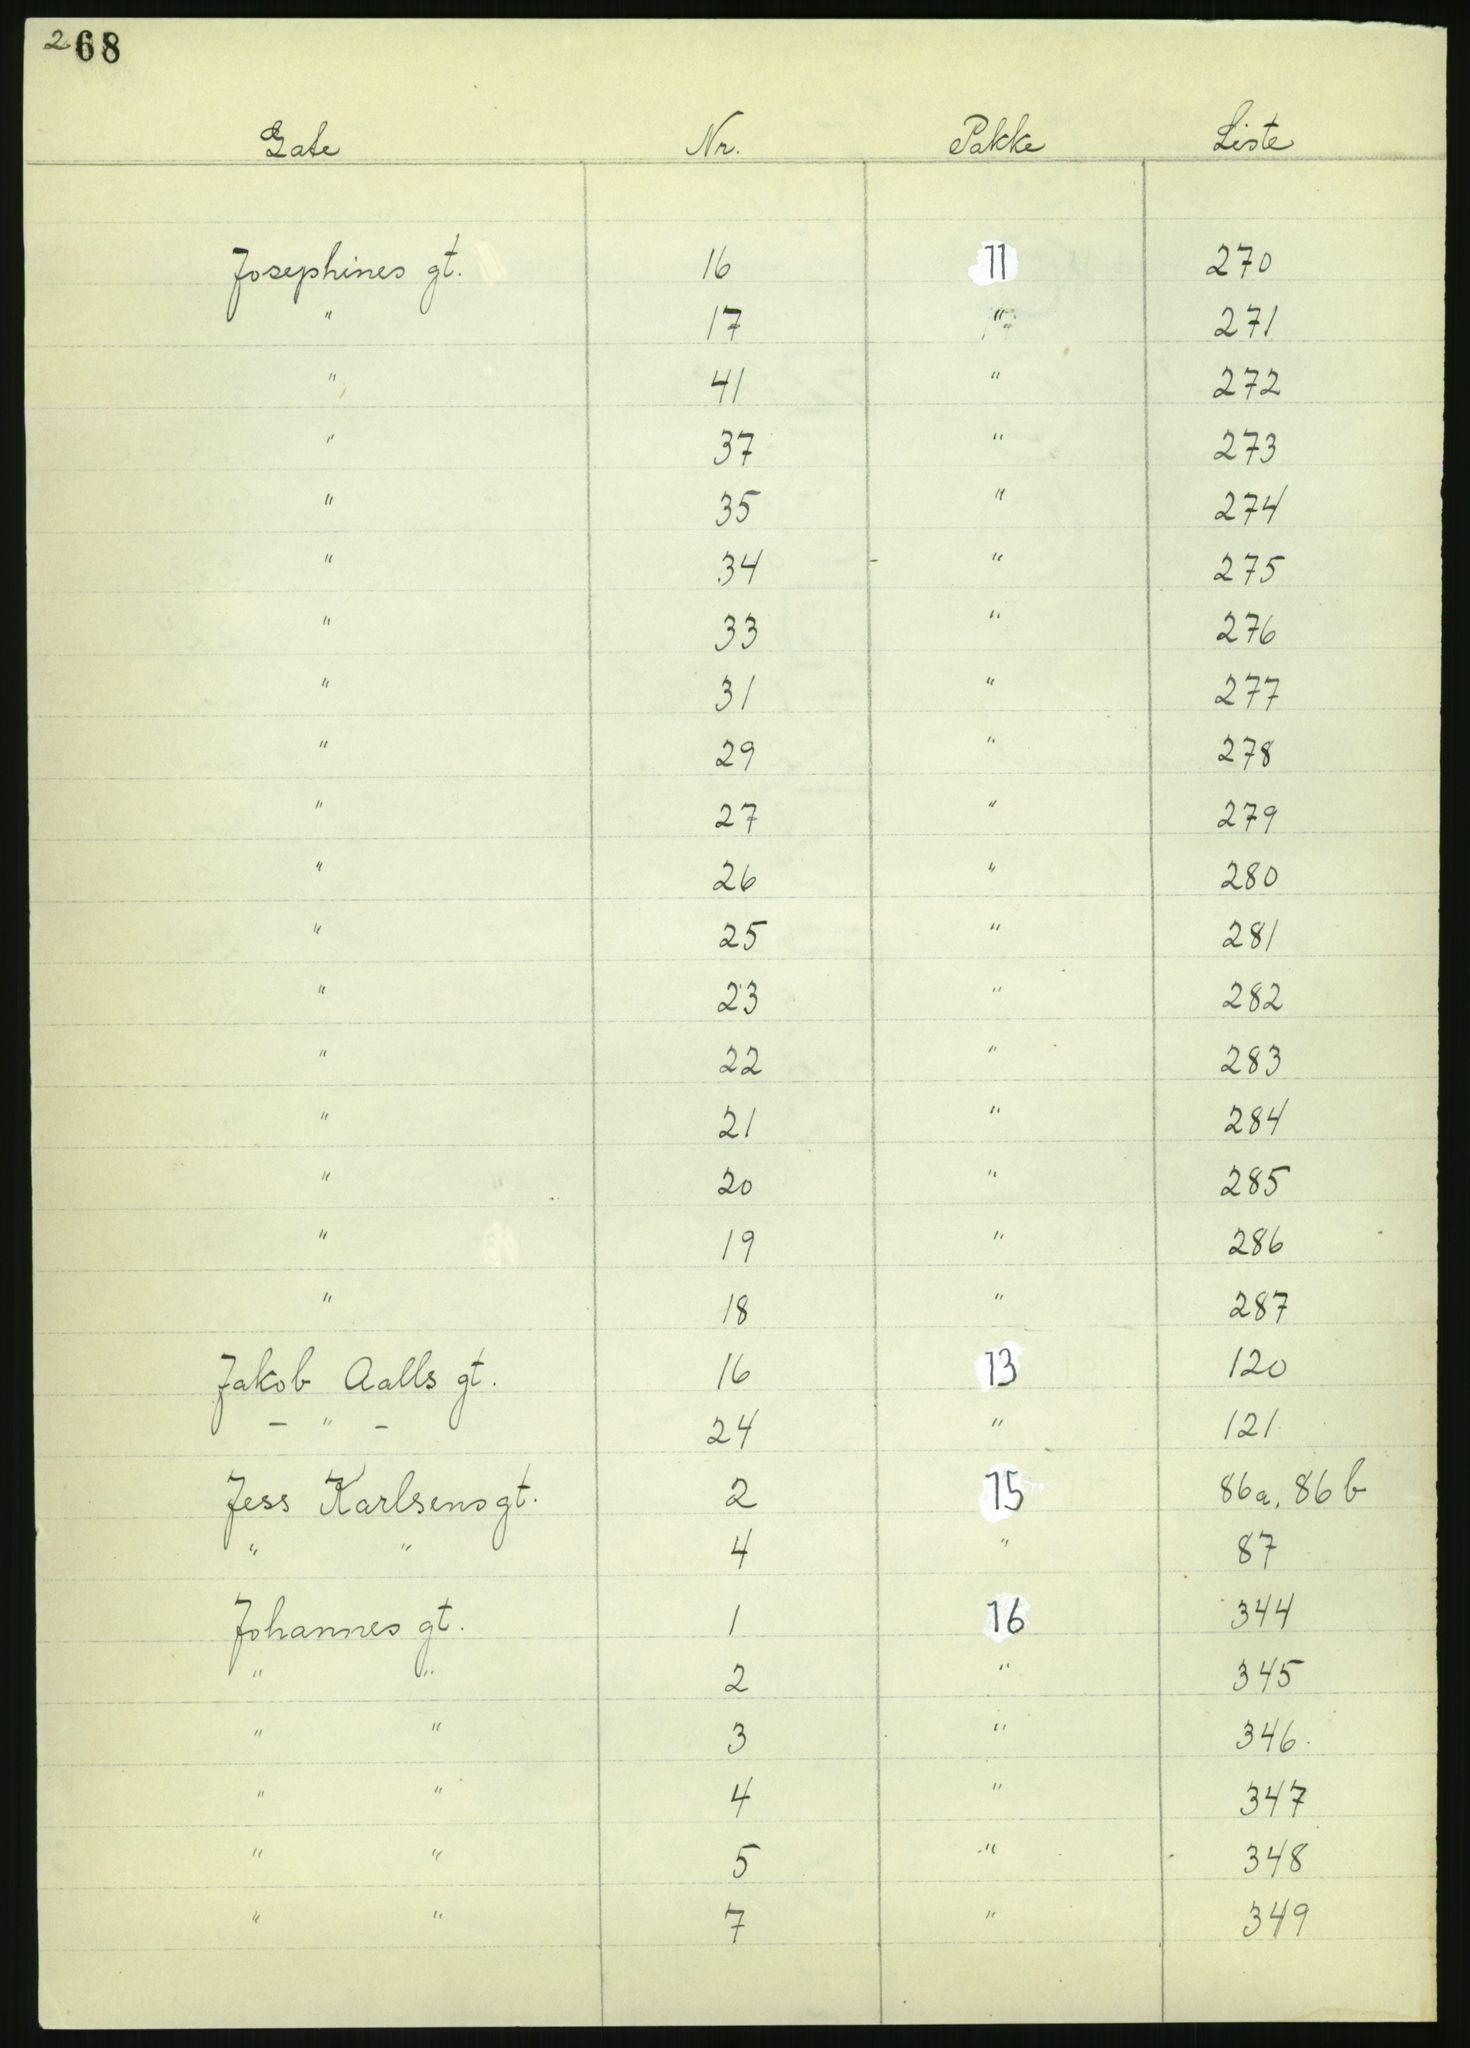 268
Gate Nr. Pakke Liste
Josephines gt. 16 11 270
" 17 " 271
" 41 " 272
" 37 " 273
" 35 " 274
" 34 " 275
" 33 " 276
" 31 " 277
" 29 " 278
" 27 " 279
" 26 " 280
" 25 " 281
" 23 " 282
" 22 " 283
" 21 " 284
" 20 " 285
" 19 " 286
" 18 " 287
Jakob Aalls gt. 16 13 120
- " - 24 " 121
Jess Karlsens gt. 2 15 86a, 86b
" " 4 " 87
Johannes gt. 1 16 344
" " 2 " 345
" " 3 " 346.
" " 4 " 347
" " 5 " 348
" " 7 " 349